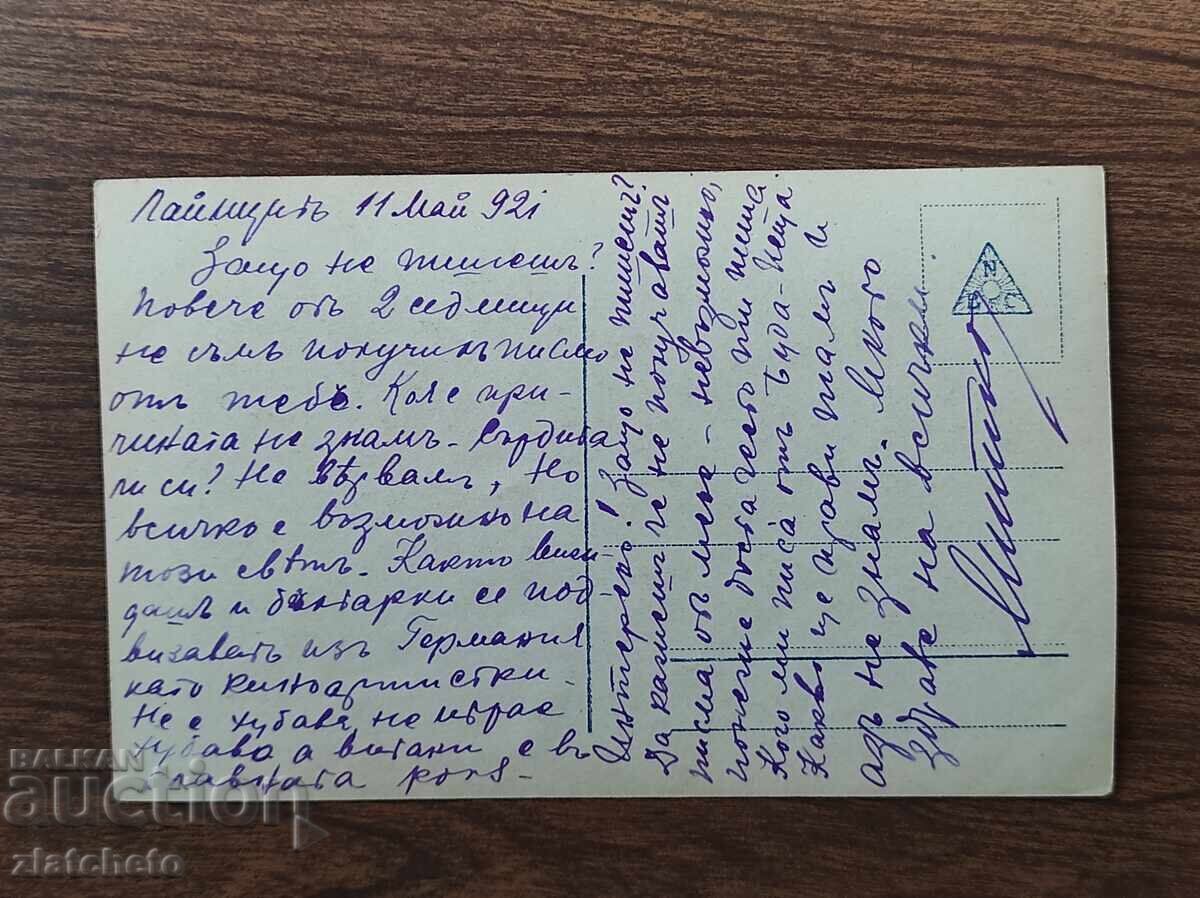 Лайпцигъ 11 Май 921
Защо не пишешъ?
Повече отъ 2 седмици
не съмъ получилъ писмо
отъ тебе. Коя е при-
чината не знамъ - Сърдита
ли си? Не вѣрвамъ, Но
всичко е възможно на
този свѣтъ. Както виж-
дашъ и българки се под-
визаватъ изъ Германия
като киноартистки.
Не е хубава, не играе
хубаво а винаги е въ
главната роля-
Интересно! Защо не пишешъ?
Да кажешъ че не получавашъ
писма отъ мене - невъзможно,
понеже доста често ти пиша.
Кого ми писа отъ Буда-Пеща
Какво ще прави тамъ и
азъ не знамъ. Много
здраве на всички.
Митко
N
P C
BALKAN
auction
zlatcheto